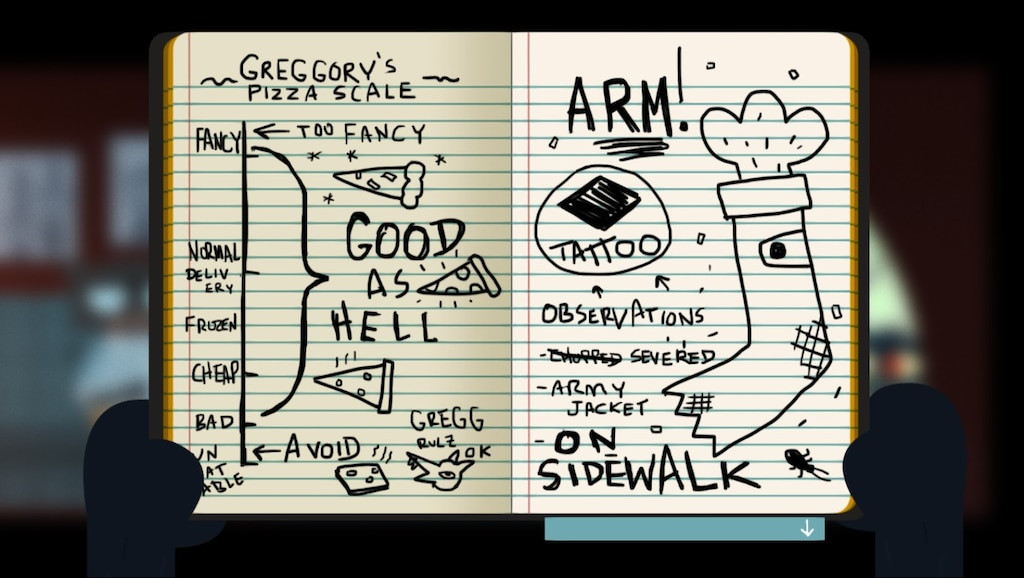 GREGGORY'S
PIZZA SCALE
FANCY
TOO FANCY
GOOD
AS
HELL
NORMAL
DELIV
ERY
FROZEN
CHEAP
BAD
AVOID
UN
EAT
ABLE
GREGG
RULZ
OK
ARM!
TATTOO
OBSERVATIONS
- CHOPPED SEVERED
- ARMY
JACKET
- ON
SIDEWALK